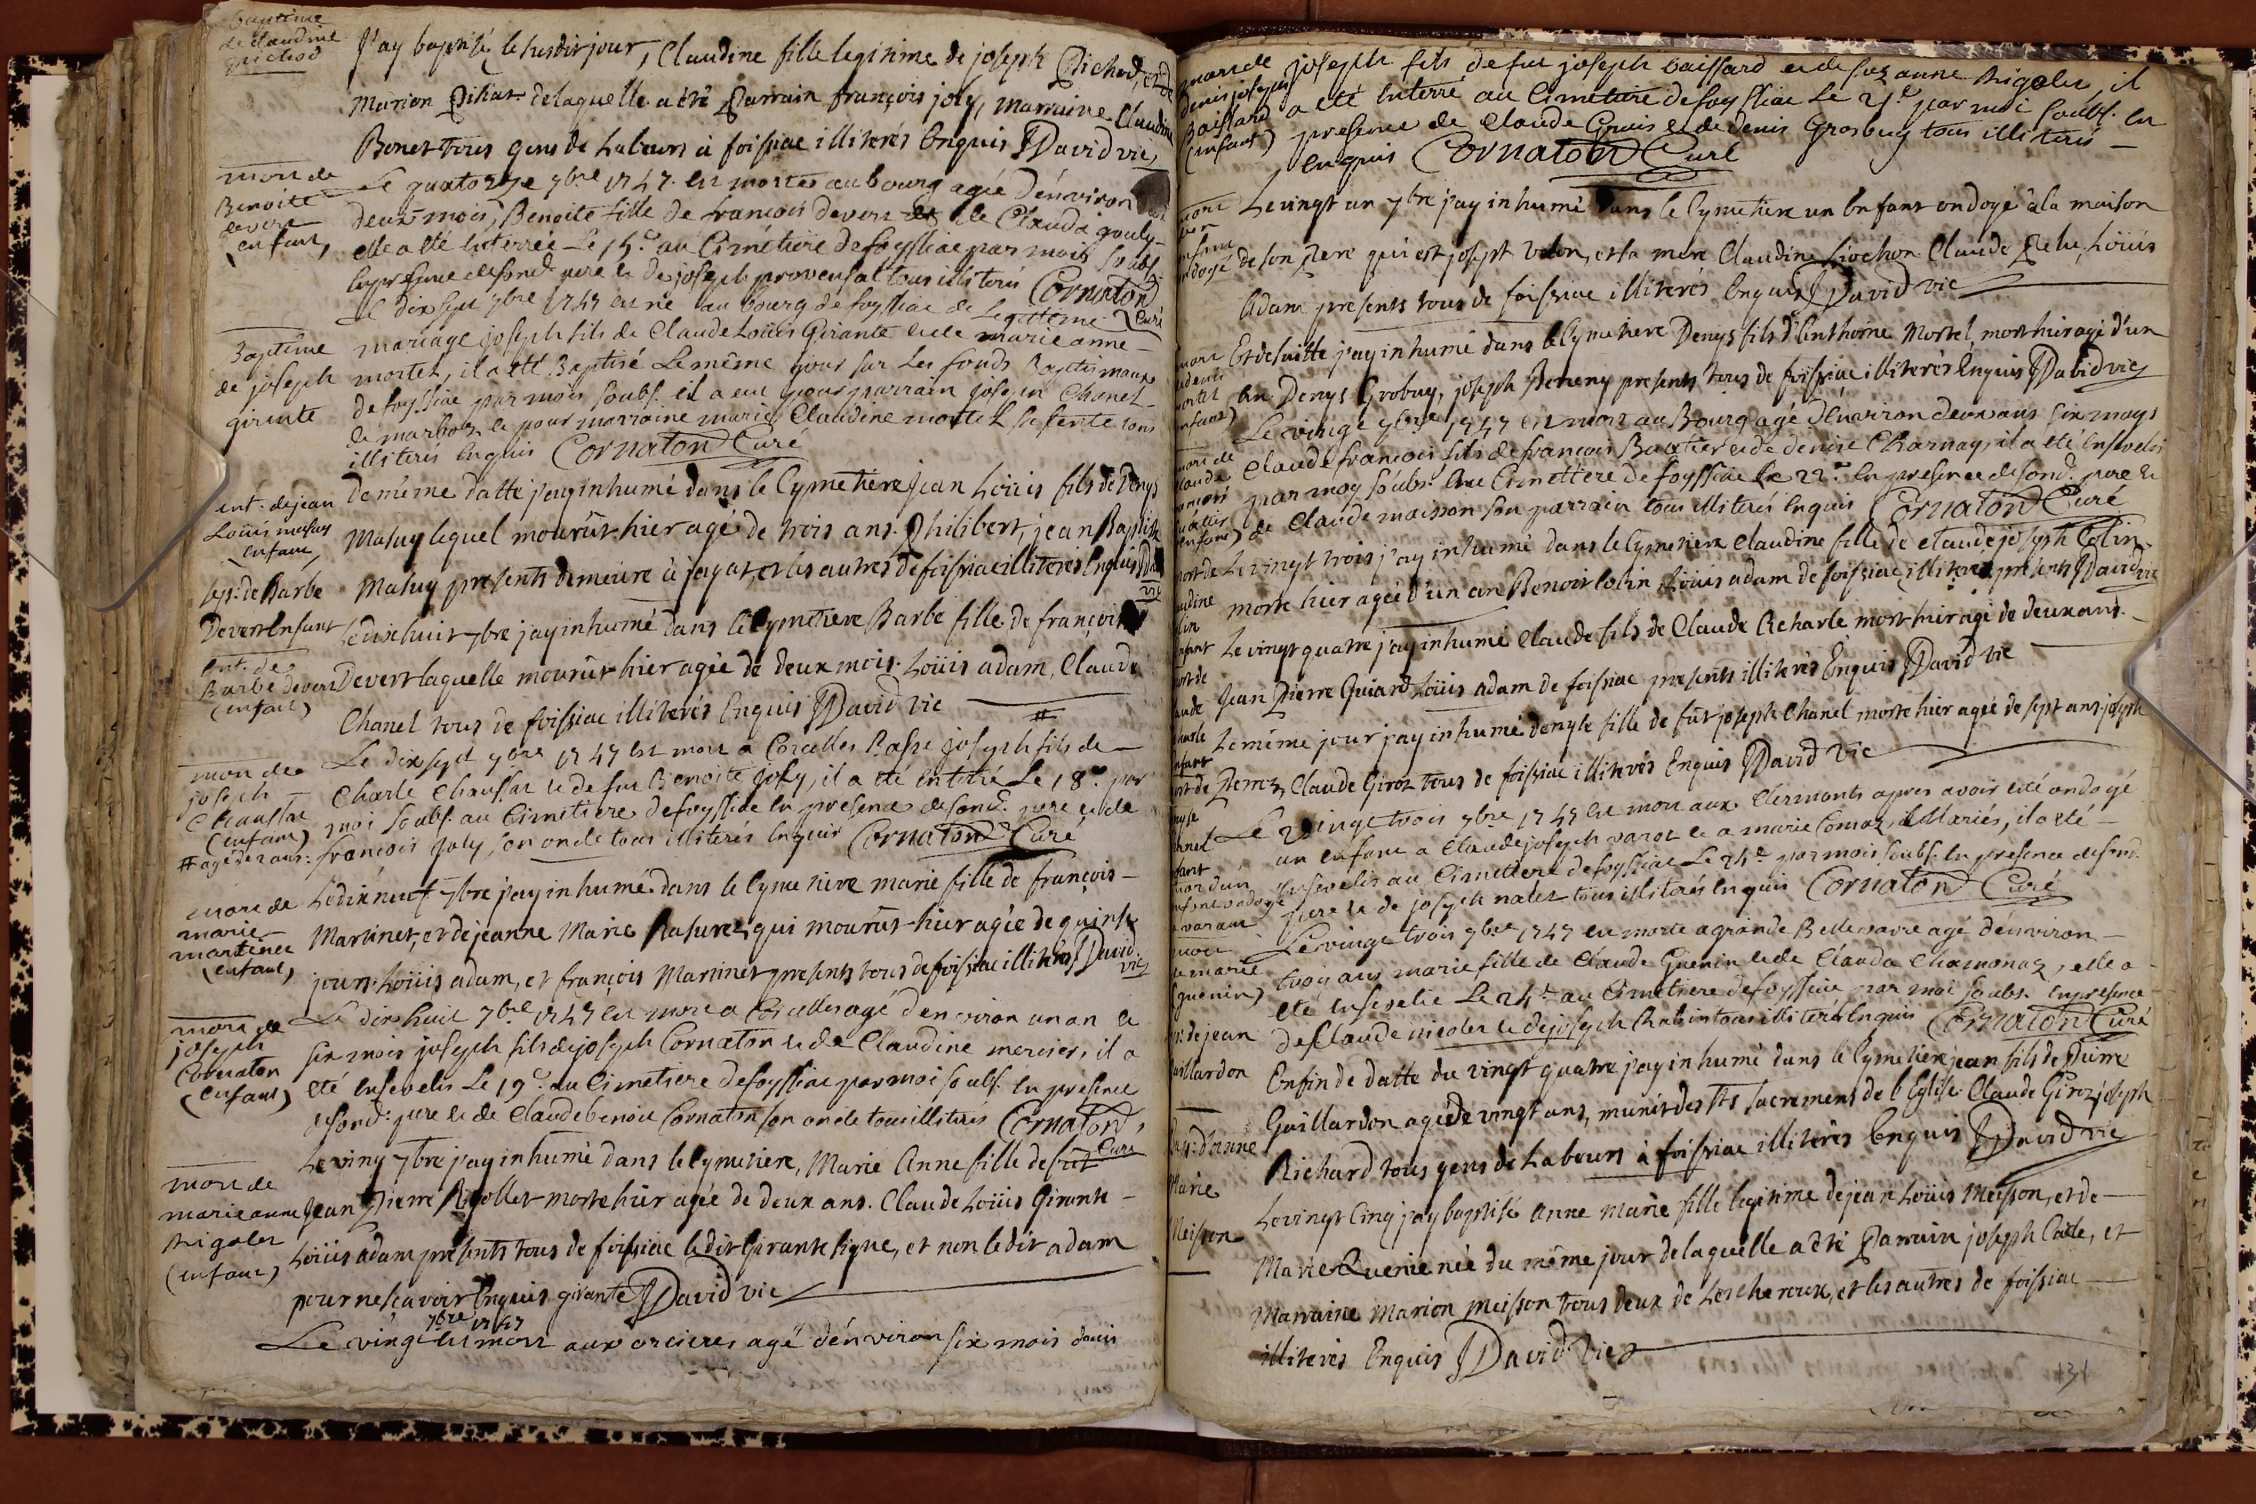 baptime
de Claudine
pichod
J'ay baptisé le susdit jour, Claudine fille legitime de joseph Pichod, et de
Marion delaquelle a été Parrain françois joly, marraine Claudine
Bonet tous gens de Labeurs à foissiac illiterés Enquis David vic
mort de
Benoite
devers
enfant
Le quatorze 7bre 1747. est morte au bourg agée d'énviron
deux mois, Benoite fille de francois devers et de Clauda
elle a été Enterrée Le 15e au Cimétiere de foyssiac par moi soubs.
En presence de sond. pere et de joseph provensal tous illiterés Cornaton
Curé
Baptême
de joseph
girante
Le dix sept 7bre 1747 est né au bourg de foyssiac de Legitime
mariage joseph fils de Claude Loüis Girante et de marie anne
mortel, il a été Baptisé Le même jour sur les fonds Baptismaux
de foyssiac par mois soubs. il a eu pour parrain joseph Chanel
de marboz et pour marraine marie Claudine mortel presente tous
illiterés Enquis Cornaton Curé
ent. de jean
Loüis matuy
enfant
De même datte j'ay inhumé dans le Cymetiere jean Loüis fils de Denys
Matuy lequel mourût hier agé de trois ans. Philibert, jean Baptiste
Matuy presents demeure à jayat, et les autres de foissiac illiterés Enquis
vic
sep: de Barbe
Devert Enfant
ent. de
Barbe devers
(enfant)
Le dix huit 7bre j'ay inhumé dans le Cymetiere Barbe fille de françois
Devert laquelle mourût hier agée de deux mois. Loüis adam, Claude
Chanel tous de foissiac illiterés Enquis David vic
#
mort de
joseph
Chaussat
(enfant)
# agé de 2 ans.
Le dix sept 7bre 1747 est mort a Corcelles Basse joseph fils de
Charle Chaussat et de fue Benoite joly, il a été Enterré Le 18e par
moi soubs. au Cimetiere de foyssiac En presence de sond. pere et de
francois joly son oncle tous illiterés Enquis Cornaton Curé
mort de
marie
martinet
(enfant)
Le dix neuf 7bre j'ay inhumé dans le Cymetiere marie fille de françois
Martinet, et de jeanne Marie qui mourût hier agée de quinse
jours. Loüis adam, et françois Martinet presents tous de foissiac illiterés David
vic
mort de
joseph
Cornaton
(enfant)
Le dix huit 7bre 1747 est mort a Corcelles agé d'énviron un an et
six mois joseph fils de joseph Cornaton et de Claudine mercier, il a
été Ensevelis Le 19e. au Cimetiere de foyssiac par moi soubs. En presence
de sond. pere et de Claude benoit Cornaton son oncle tous illiterés Cornaton
Curé
mort de
marie anne
Rigolet
(enfant)
Le vingt 7bre j'ay inhumé dans le Cymetiere, Marie Anne fille de fût
Jean Pierre Rigollet morte hier agée de deux ans. Claude Loüis Girante
Loüis adam presents tous de foissiac le dit Girante signe, et non le dit adam
pour ne sçavoir Enquis girante David vic
7bre 1747
Le vingt est mort aux orcieres agé d'énviron six mois denis
mort de
denis joseph
Baissard
(enfant)
joseph fils de fut joseph baissard et de suzanne Rigolet, il
a été Enterré au Cimetiere de foyssiac Le 21e par moi soubs. En
presence de Claude et de denis Grosbuy tous illiterés
enquis Cornaton Curé
mort
enfant
ondoyé
Le vingt un 7bre j'ay inhumé dans le Cymetiere un Enfant ondoyé à la maison
de son Pere qui est josept et sa mere Claudine Claude Loüis
Adam presents tous de foissiac illiterés Enquis David vic
mort
denis
mortel
enfant)
Et de suitte j'ay inhumé dans le Cymetiere Denys fils d'Enthoine Mortel, mort hier agé d'un
An. Denys Grobuy, joseph presents tous de foissiac illiterés Enquis David vic
mort de
claude
enfant)
Le vingt 7bre 1747 est mort au Bourg agé d'énviron deux ans six moys
Claude francois fils de francois et de denise Charnay, il a été Enseveli
par moy soubs. au Cimettere de foyssiac Le 22e En presence de sond. pere et
de Claude maisson son parrain tous illiterés Enquis Cornaton Curé
mort de
Le vingt trois j'ay inhumé dans le Cymetiere Claudine fille de Claude joseph Colin
morte hier agée d'un an. Benoit Colin, Loüis adam de foissiac illiterés presents David vic
Le vingt quatre j'ay inhumé Claude fils de Claude Acharle mort hier agé de deux ans.
Jean Pierre Guiard Loüis adam de foissiac presents illiterés Enquis David vic
Le même jour j'ay inhumé denyse fille de fût joseph Chanel morte hier agée de sept ans joseph
Claude Giroz tous de foissiac illiterés Enquis David vic
Le vingt trois 7bre 1747 est mort aux Clermonts apres avoir été ondoyé
un enfant a Claude joseph varot et a marie Mariés, il a été
Ensevelis au Cimettere de foyssiac Le 24e par mois soubs. En presence de sond.
pere et de joseph tous illiterés Enquis Cornaton Curé
mort
de marie
(guenin)
Le vingt trois 7bre 1747 est morte a grande agé d'énviron
trois ans marie fille de Claude Guenin et de Clauda Chamonaz, elle a
été Ensevelie Le 24e au Cimetiere de foyssiac par moi soubs. En presence
de Claude nicolet et de joseph tous illiterés Enquis Cornaton Curé
de jean
Guillardon
Enfin de datte du vingt quatre j'ay inhumé dans le Cymetiere jean fils de Pierre
Guillardon agé de vingt ans, munit des sts sacremens de l'Eglise. Claude Giroz, joseph
Richard tous gens de Labeurs à foissiac illiterés Enquis David vic
d'anne
Marie
Meisson
Le vingt Cinq j'ay baptisé Anne Marie fille legitime de jean Loüis Meisson, et de
Marie née du même jour de laquelle a été Parrain joseph et
Marraine Marion Meisson tous deux de Lescheroux, et les autres de foissiac
illiterés Enquis David vic
131